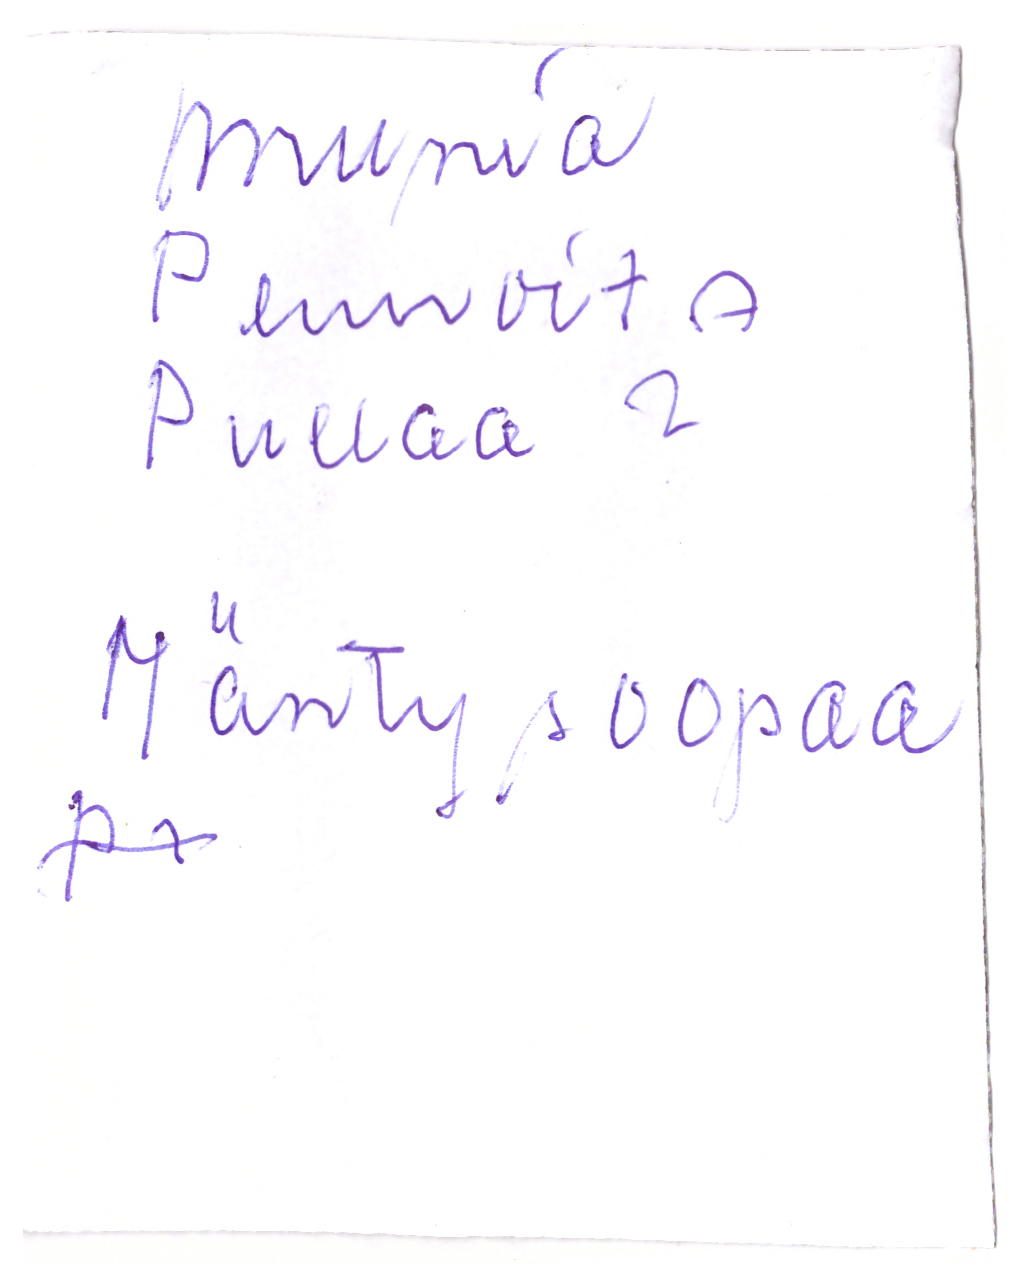 munia
Perunoita
Pullaa 2
Mäntysoopaa